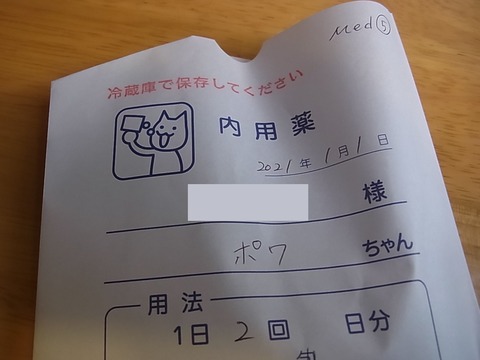 Med⑤
冷蔵庫で保存してください
内用薬
2021年1月1日
様
ポワ ちゃん
用法
1日 2 回 日分